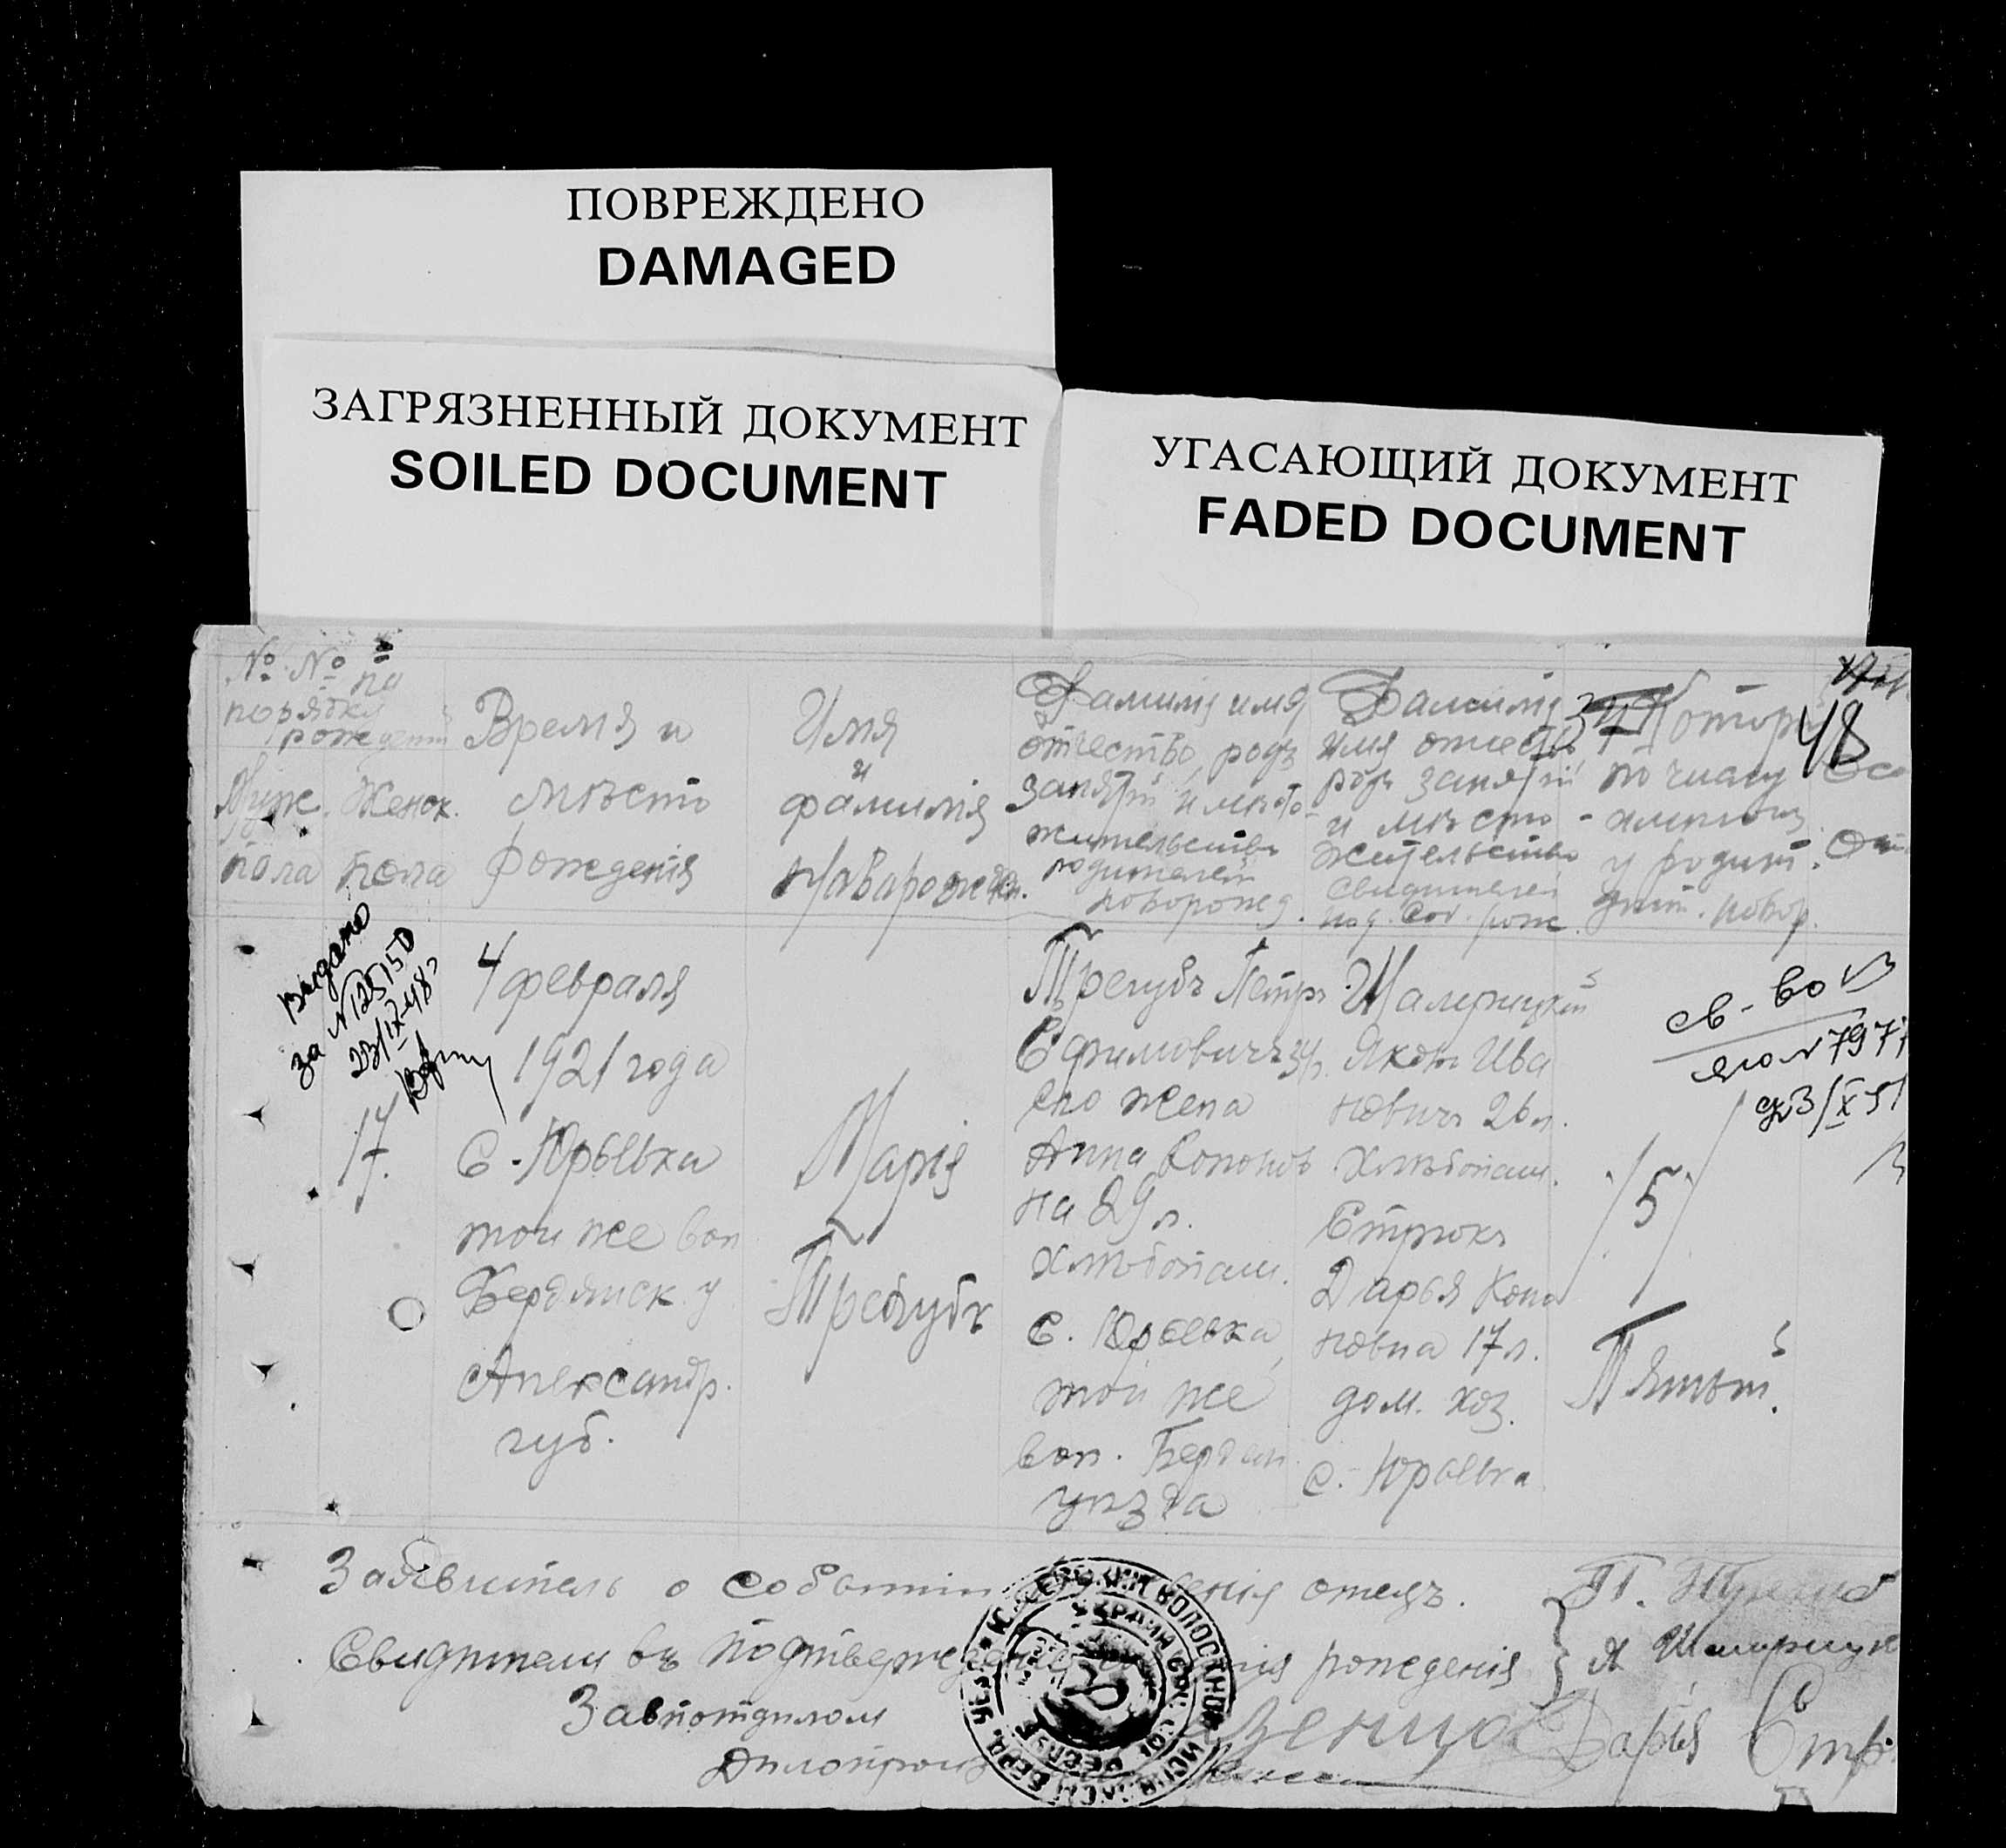 ПОВРЕЖДЕНО
DAMAGED
ЗАГРЯЗНЕННЫЙ ДОКУМЕНТ
SOILED DOCUMENT
УГАСАЮЩИЙ ДОКУМЕНТ
FADED DOCUMENT
48
№ № по
порядку
рожденій
Муж. Женск.
пола пола
Время и
мѣсто
рожденія
Имя
и
фамилія
Фамилія имя
отчество, родъ
занятій и мѣсто
жительства
родителей
новорожд.
Фамилія
имя отчество
родъ занятій
и мѣсто
жительство
свидѣтелей
Который
по числу
у родит.
дит. новор.
Выдано
за № 125150
23/IX-48г
17.
4 февраля
1921 года
С. Юрьевка
той же вол
Бердянск у
Александр.
губ.
Марія
Трегубъ
Трегубъ Петръ
Ефимовичъ 34л.
его жена
Анна Кононов
на 29 л.
хлѣбопаш.
С. Юрьевка
той же
вол. Бердян.
уѣзда
Яковъ Ива
новичъ 26 л.
хлѣбопаш.
Стрюкъ
Дарья Коно
новна 17 л.
дом. хоз.
С. Юрьевка
/5/
Пятый.
св-во
№ 797
Заявитель о событіи отецъ.
Свидѣтели въ рожденія
Завподотдѣломъ
Дарья Стр